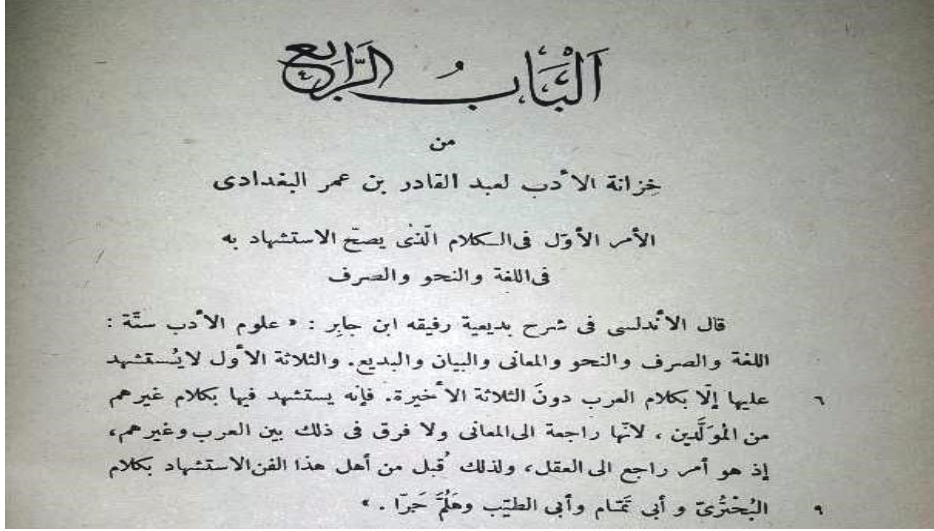 اَلْبَابُ الرَّابِع
من
خِزانة الأدب لعبد القادر بن عمر البغدادى
الأمر الأوّل فى الكلام الّذى يصحّ الاستشهاد به
فى اللغة والنحو والصرف
قال الأندلسى فى شرح بديعية رفيقه ابن جابِر : « علوم الأدب ستّة :
اللغة والصرف والنحو والمعانى والبيان والبديع. والثلاثة الأول لايُستشهد
٦ عليها إلّا بكلام العرب دونَ الثلاثة الأخيرة. فإنه يستشهد فيها بكلام غيرهم
من المُوَلَّدين ، لانّها راجعة الى المعانى ولا فرق فى ذلك بين العرب وغيرهم،
إذ هو أمر راجع الى العقل، ولذلك قُبل من أهل هذا الفن الاستشهاد بكلام
٩ البُحْتُرىّ و أبى تَمّام وأبى الطيّب وهَلُمَّ جَرّا . »